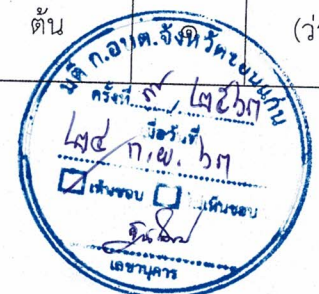 ต้น ๑ (ว่
มติ ก.อบต.จังหวัดขอนแก่น
ครั้งที่ ๙ / ๒๕๖๓
เมื่อวันที่
๒๔ ก.ย. ๖๓
เห็นชอบ ไม่เห็นชอบ
เลขานุการ